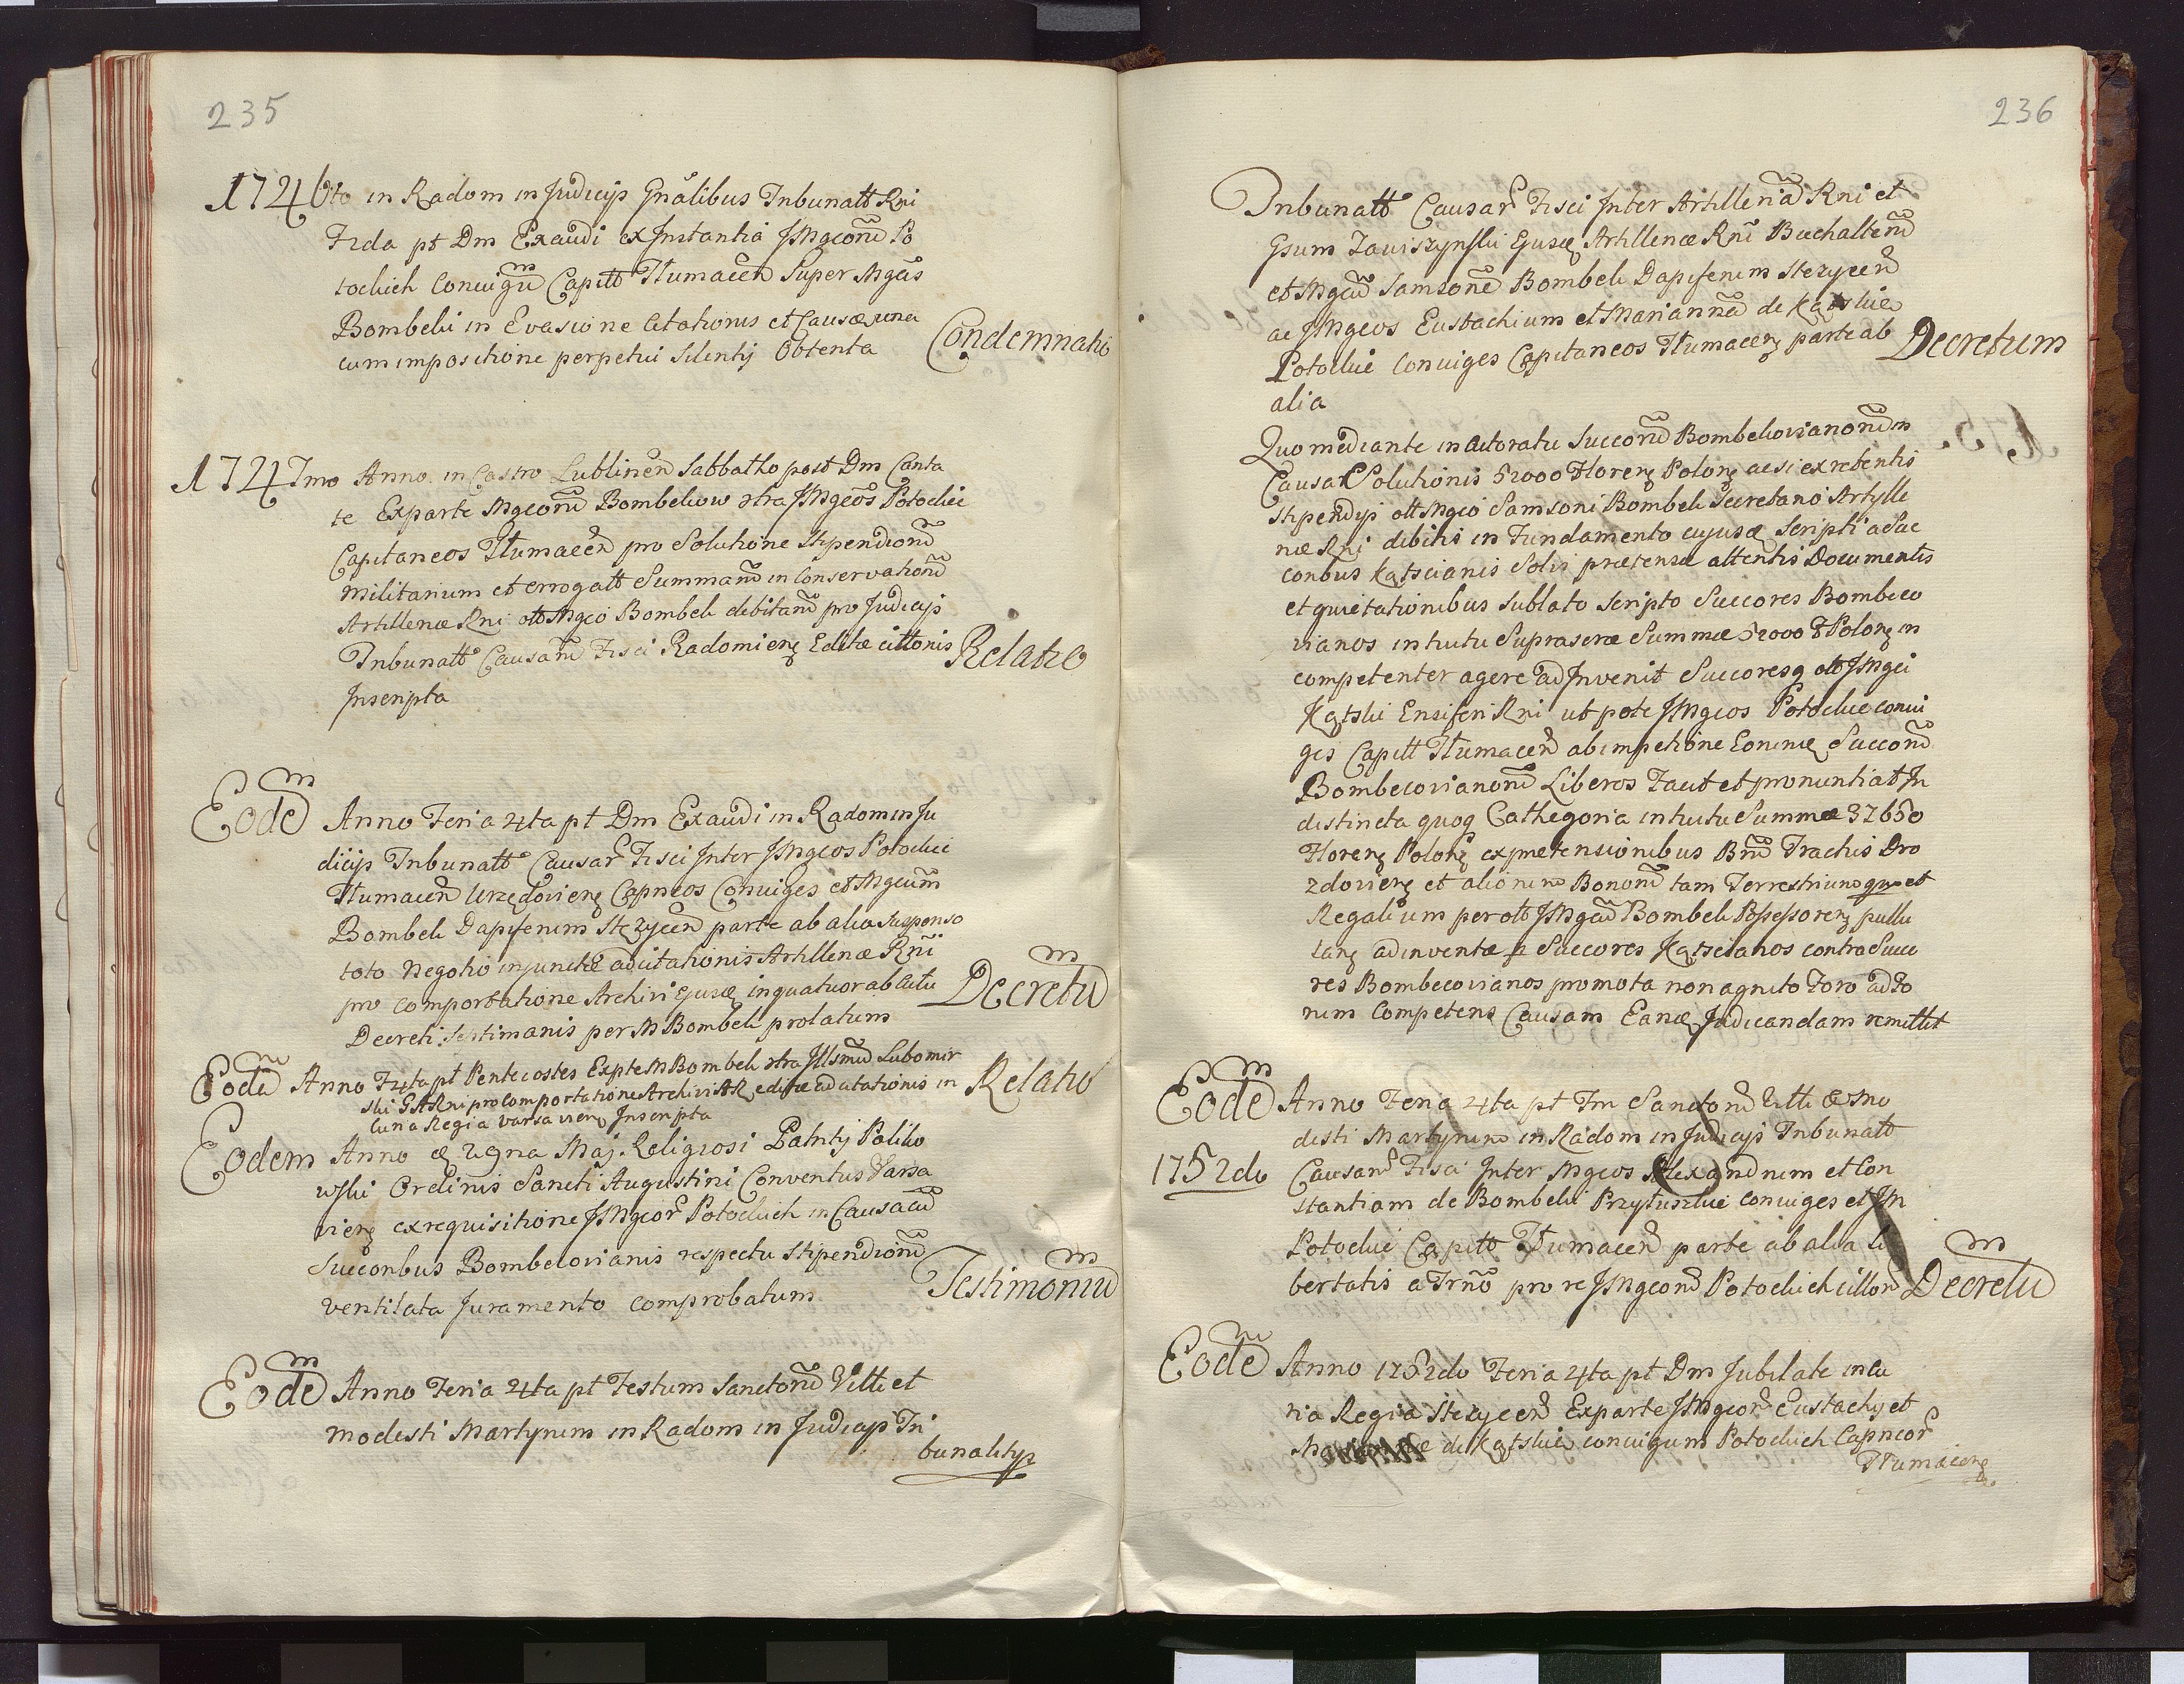 235
1746to in Radom in Judicijs Gnãlibus Tribunatt Rni
Frda pt Dm Exaudi ex Instantia JMgcorũ Po
tockich Conuigũ Capitt Tłumacen Super Mgcos
Bombeki in Evasione Citationis et Causæ, una
cum impositione perpetui Silentij Obtenta Condemnatio
1747mo Anno in Castro Lublinen Sabbatho post Dm Canta
te Exparte Mgcorũ Bombekow ctra JMgcos Potockie
Capitaneos Tłumacen pro Solutione Stipendiorũ
militarium et errogatt Summarũ in Conservationẽ
Artilleriæ Rni ott Mgco Bombek debitarũ pro Judicijs
Tribunatt Causarũ Fisci Radomien Editæ cittonis Relatio
Inscripta
Eodẽm Anno Feria 4ta pt Dm Exaudi in Radom in Ju
dicijs Tribunatt Causar Fisci Inter JMgcos Potockie
Tłumacen Urzędovien Capneos Conuiges et Mgcum
Bombek Dapiferum Stęzycen parte ab alia Suspenso
toto Negotio injunctæ adcitationis Artilleriæ Rni
pro Comportatione Archivi Ejusq in quatuor ab Actu Decretũm
Decreti Septimanis per M Bombek prolatum
Eodẽ Anno F 4ta pt Pentecostes Expte M Bombek ctra Jllsmũ Lubomir
ski GARni pro Comportatione Archivi AR editæ adcitationis in Relatio
Curia Regia Varsavien Inscripta
Eodem Anno 29na Maj. Religiosi Patritij Paliko
wski Ordinis Sancti Augustini Conventus Varsa
vien ex requisitione JMgcor Potockich in Causa cũ
Succoribus Bombekovianis respectu Stipendiorũ
ventilata Juramento comprobatum Testimoniũm
Eodẽm Anno Feria 4ta pt Festum Sanctorũ Vitti et
Modesti Martyrum in Radom in Judicijs Tri
bunalityʒ
236
Tribunatt Causar Fisci Inter Artilleriã Rni et
Gsum Zawiszynski Ejusq Artilleriæ Rni Buchalterũ
et Mgcũ Samsonẽ Bombek Dapiferum Stezycen
ac JMgcos Eustachium et Mariannã de Kątskie
Potockie Conuiges Capitaneos Tłumacen parte ab Decretum
alia
Quo mediante in Actoratu Succorũ Bombekovianorũ in
Causa Solutionis 52000 Floren Polon ac si ex retentis
stipendijs ott Mgco Samsoni Bombek Secretario Artylle
riæ Rni debitis in Fundamento cujusq Scripti a Suc
coribus Kątscianis Solis prætensæ attentis Documentis
et quietationibus sublato Scripto Succores Bombeco
vianos intuitu Suprascræ Summæ 52000 F Polon in
competenter agere adJnvenit Succoresq ott JMgci
Kątski Ensiferi Rni ut pote JMgcos Potockie conui
ges Capitt Tłumacen ab impetione Eorumq Succorũ
Bombecovianorũ Liberos Facit et pronuntiat In
distincta quoq Cathegoria intuitu Summæ 37650
Floren Polon ex prætensionibus Bnrũ Trachis Dro
zdovien et aliorum Bonorũ tam Terrestrium qm et
Regalium per ott JMgcũ Bombek Possessoren pullu
lan adinventæ p Succores Kątscianos contra Succo
res Bombecovianos promota non agnito Foro ad Fo
rum Competens Causam Eanq Judicandam remittit
Eodẽm Anno Feria 4ta pt Fm Sanctorũ Vitti et Mo
desti Martyrum in Radom in Judicijs Tribunatt
1752do Causarũ Fisci Inter Mgcos Alexandrum et Con
stantiam de Bombeki Przyłuskie Conuiges et JM
Potockie Capitt Tłumacen parte ab alia li
bertatis a Trmõ pro re JMgcorũ Potockich cittorũ Decretũm
Eodẽm Anno 1752do Feria 4ta pt Dm Jubilate in Cu
ria Regia Stezycen Exparte JMgcor Eustachij et
de Kątskie conuigum Potockich Capneor
Tłumacen